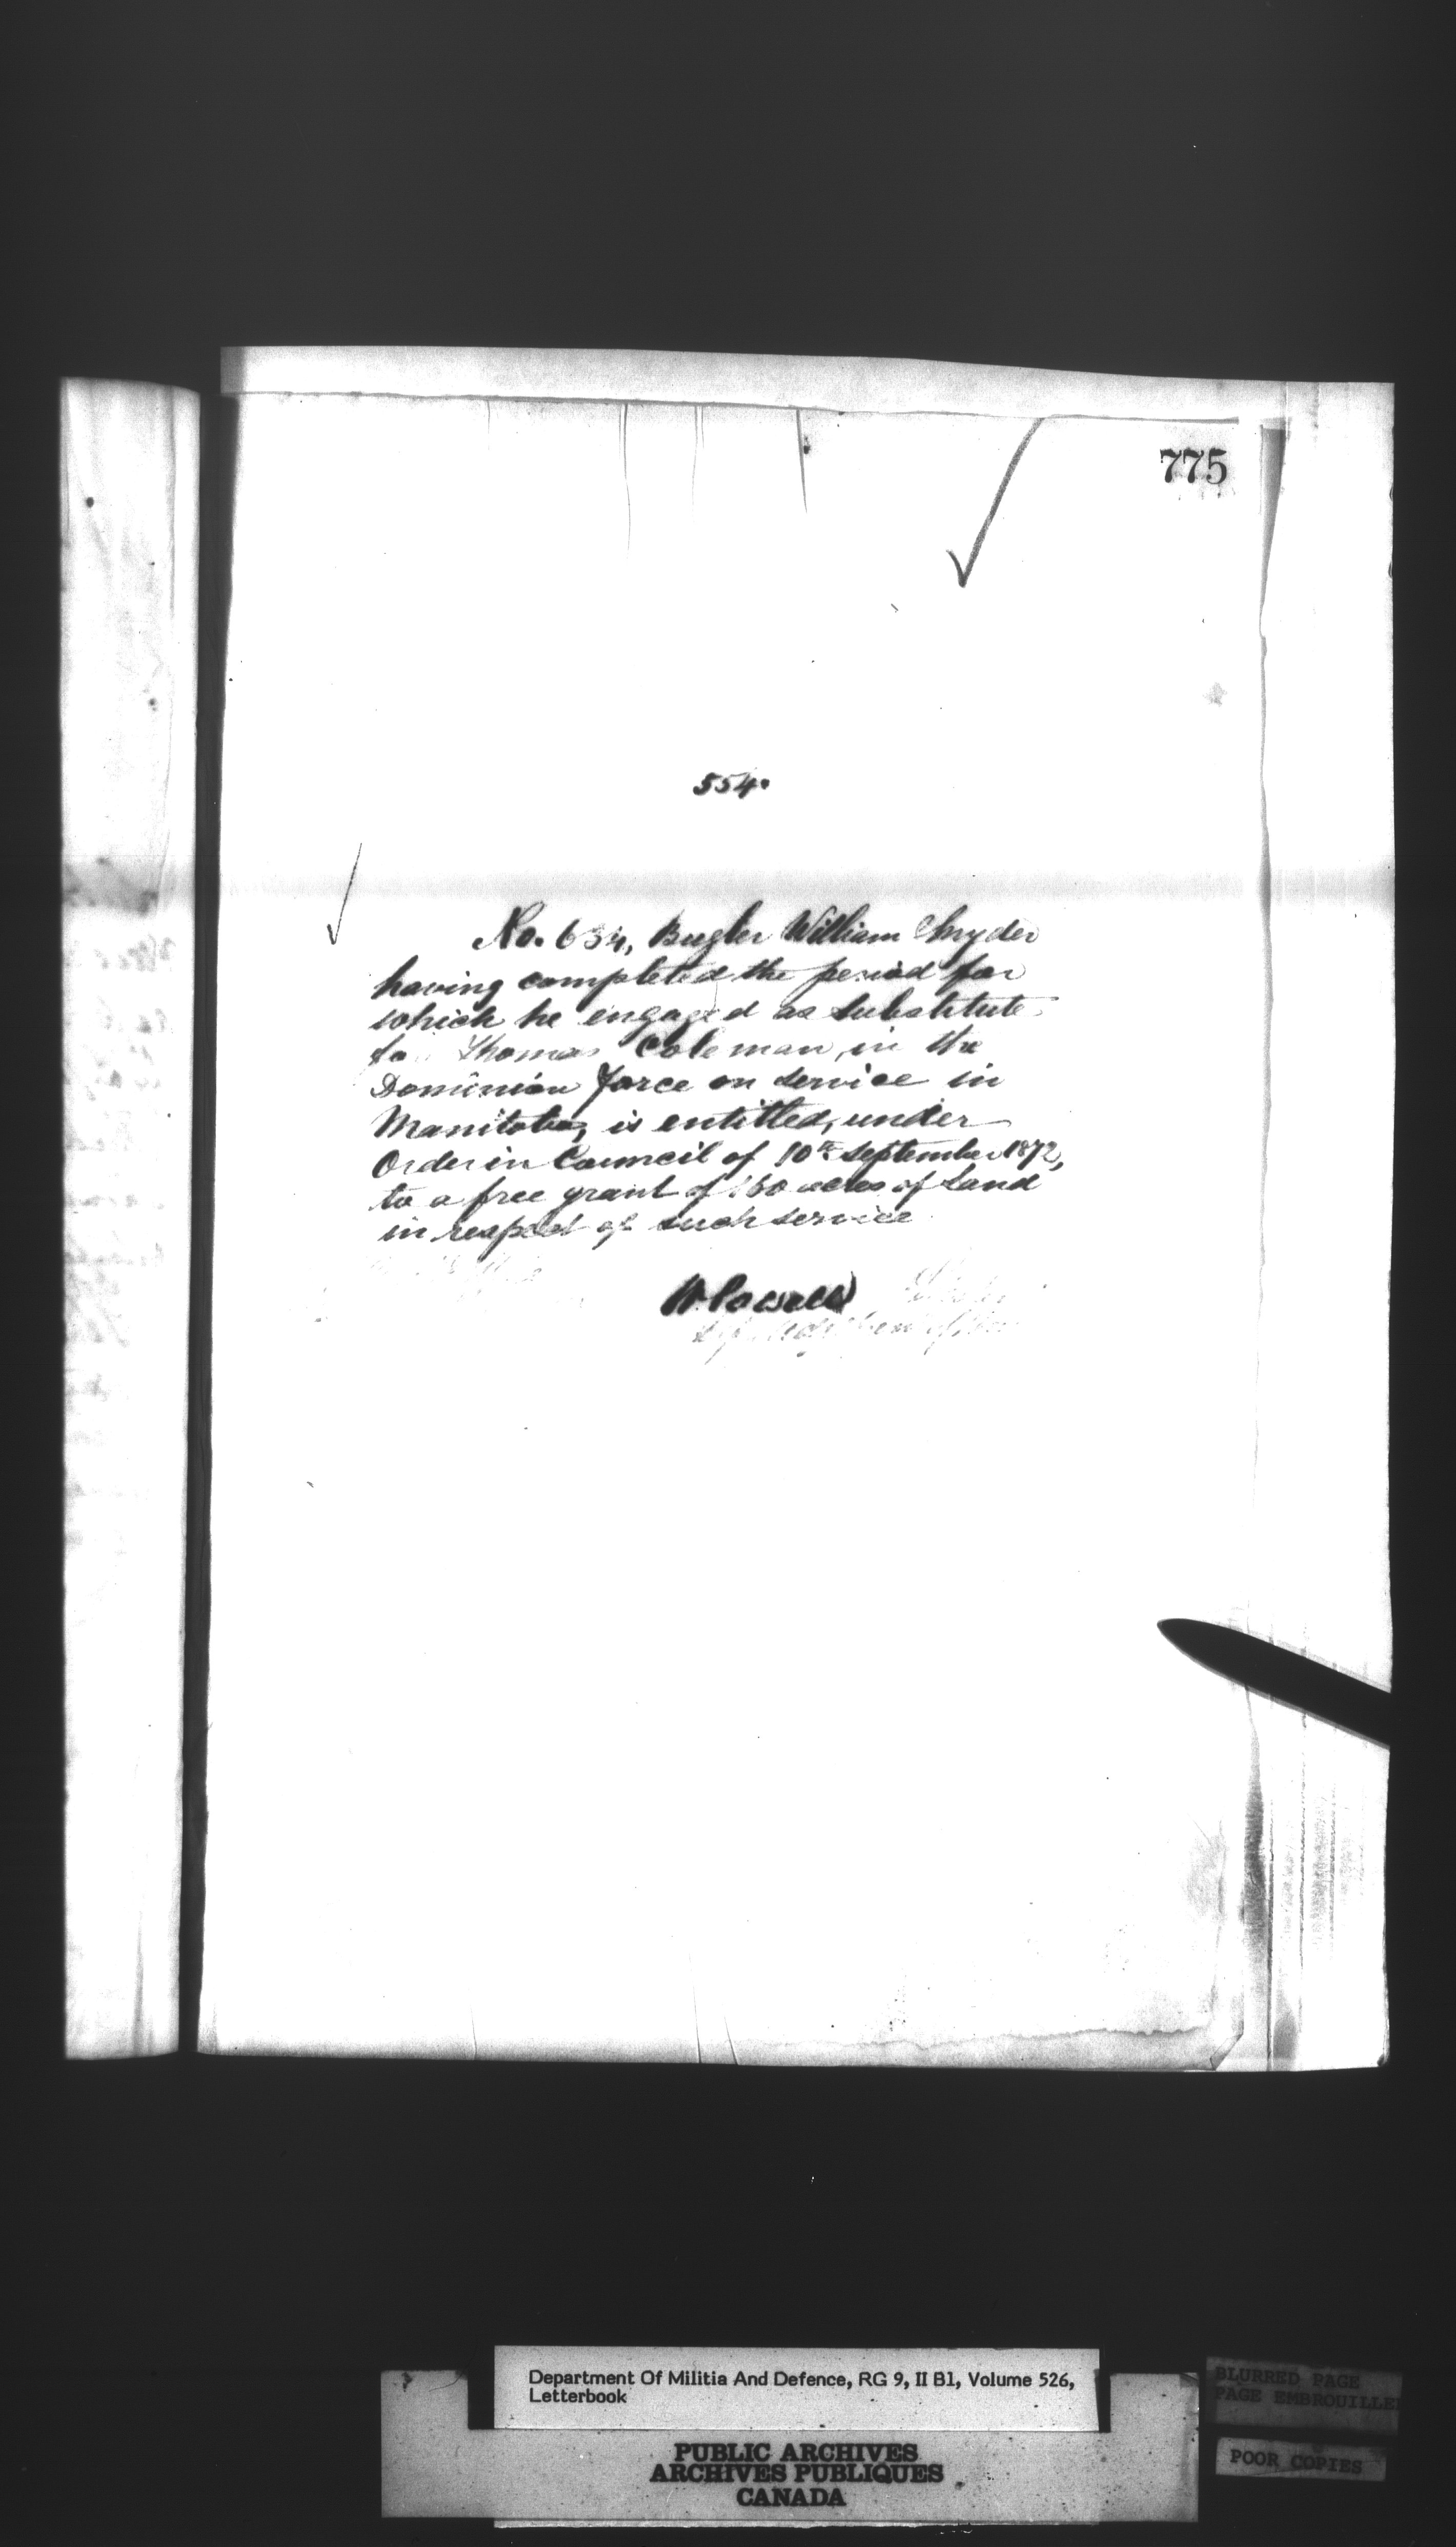 775
554.
No. 634, Bugler William Snyder
having completed the period for
which he engaged as substitute
for Thomas Coleman, in the
Dominion Force on service in
Manitoba, is entitled, under
Order in Council of 10th September 1872,
to a free grant of 160 acres of Land
in respect of such service
W Powell
Department Of Militia And Defence, RG 9, II B1, Volume 526,
Letterbook
PUBLIC ARCHIVES
ARCHIVES PUBLIQUES
CANADA
BLURRED PAGE
PAGE EMBROUILLEE
POOR COPIES